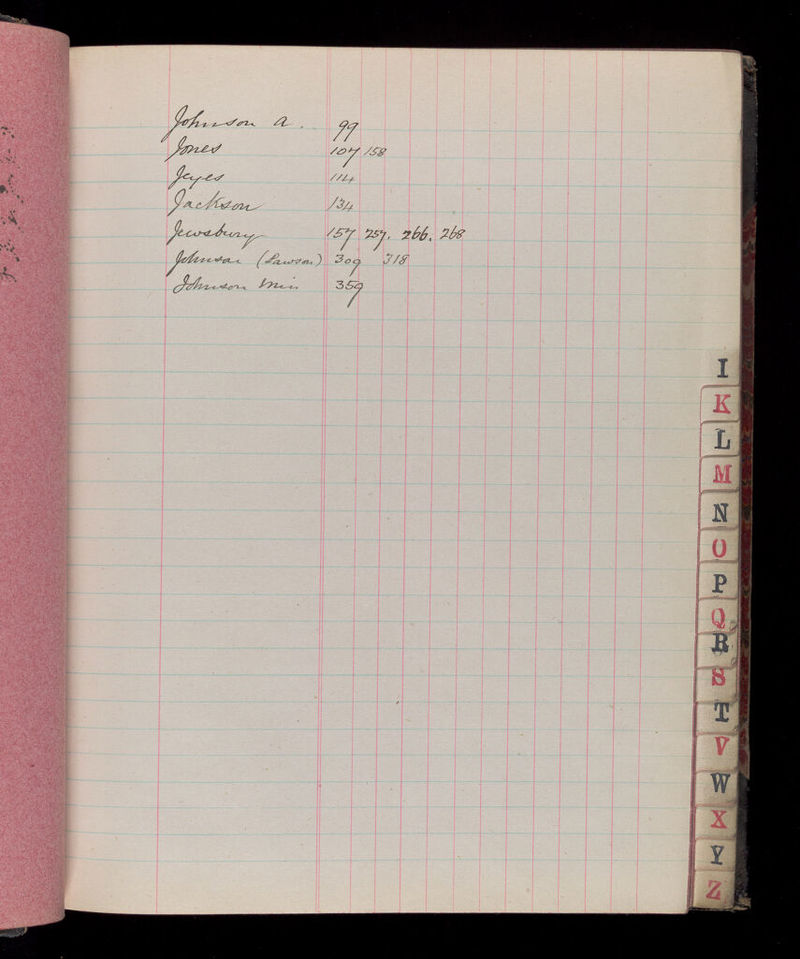 Johnson A. 99
Jones 107 158
Jeyes 114
Jackson 134
Jewsbury 157 257. 266. 268
Johnson (Lawson) 309 318
Johnson 359
I
K
L
M
N
O
P
Q
R
S
T
V
W
X
Y
Z